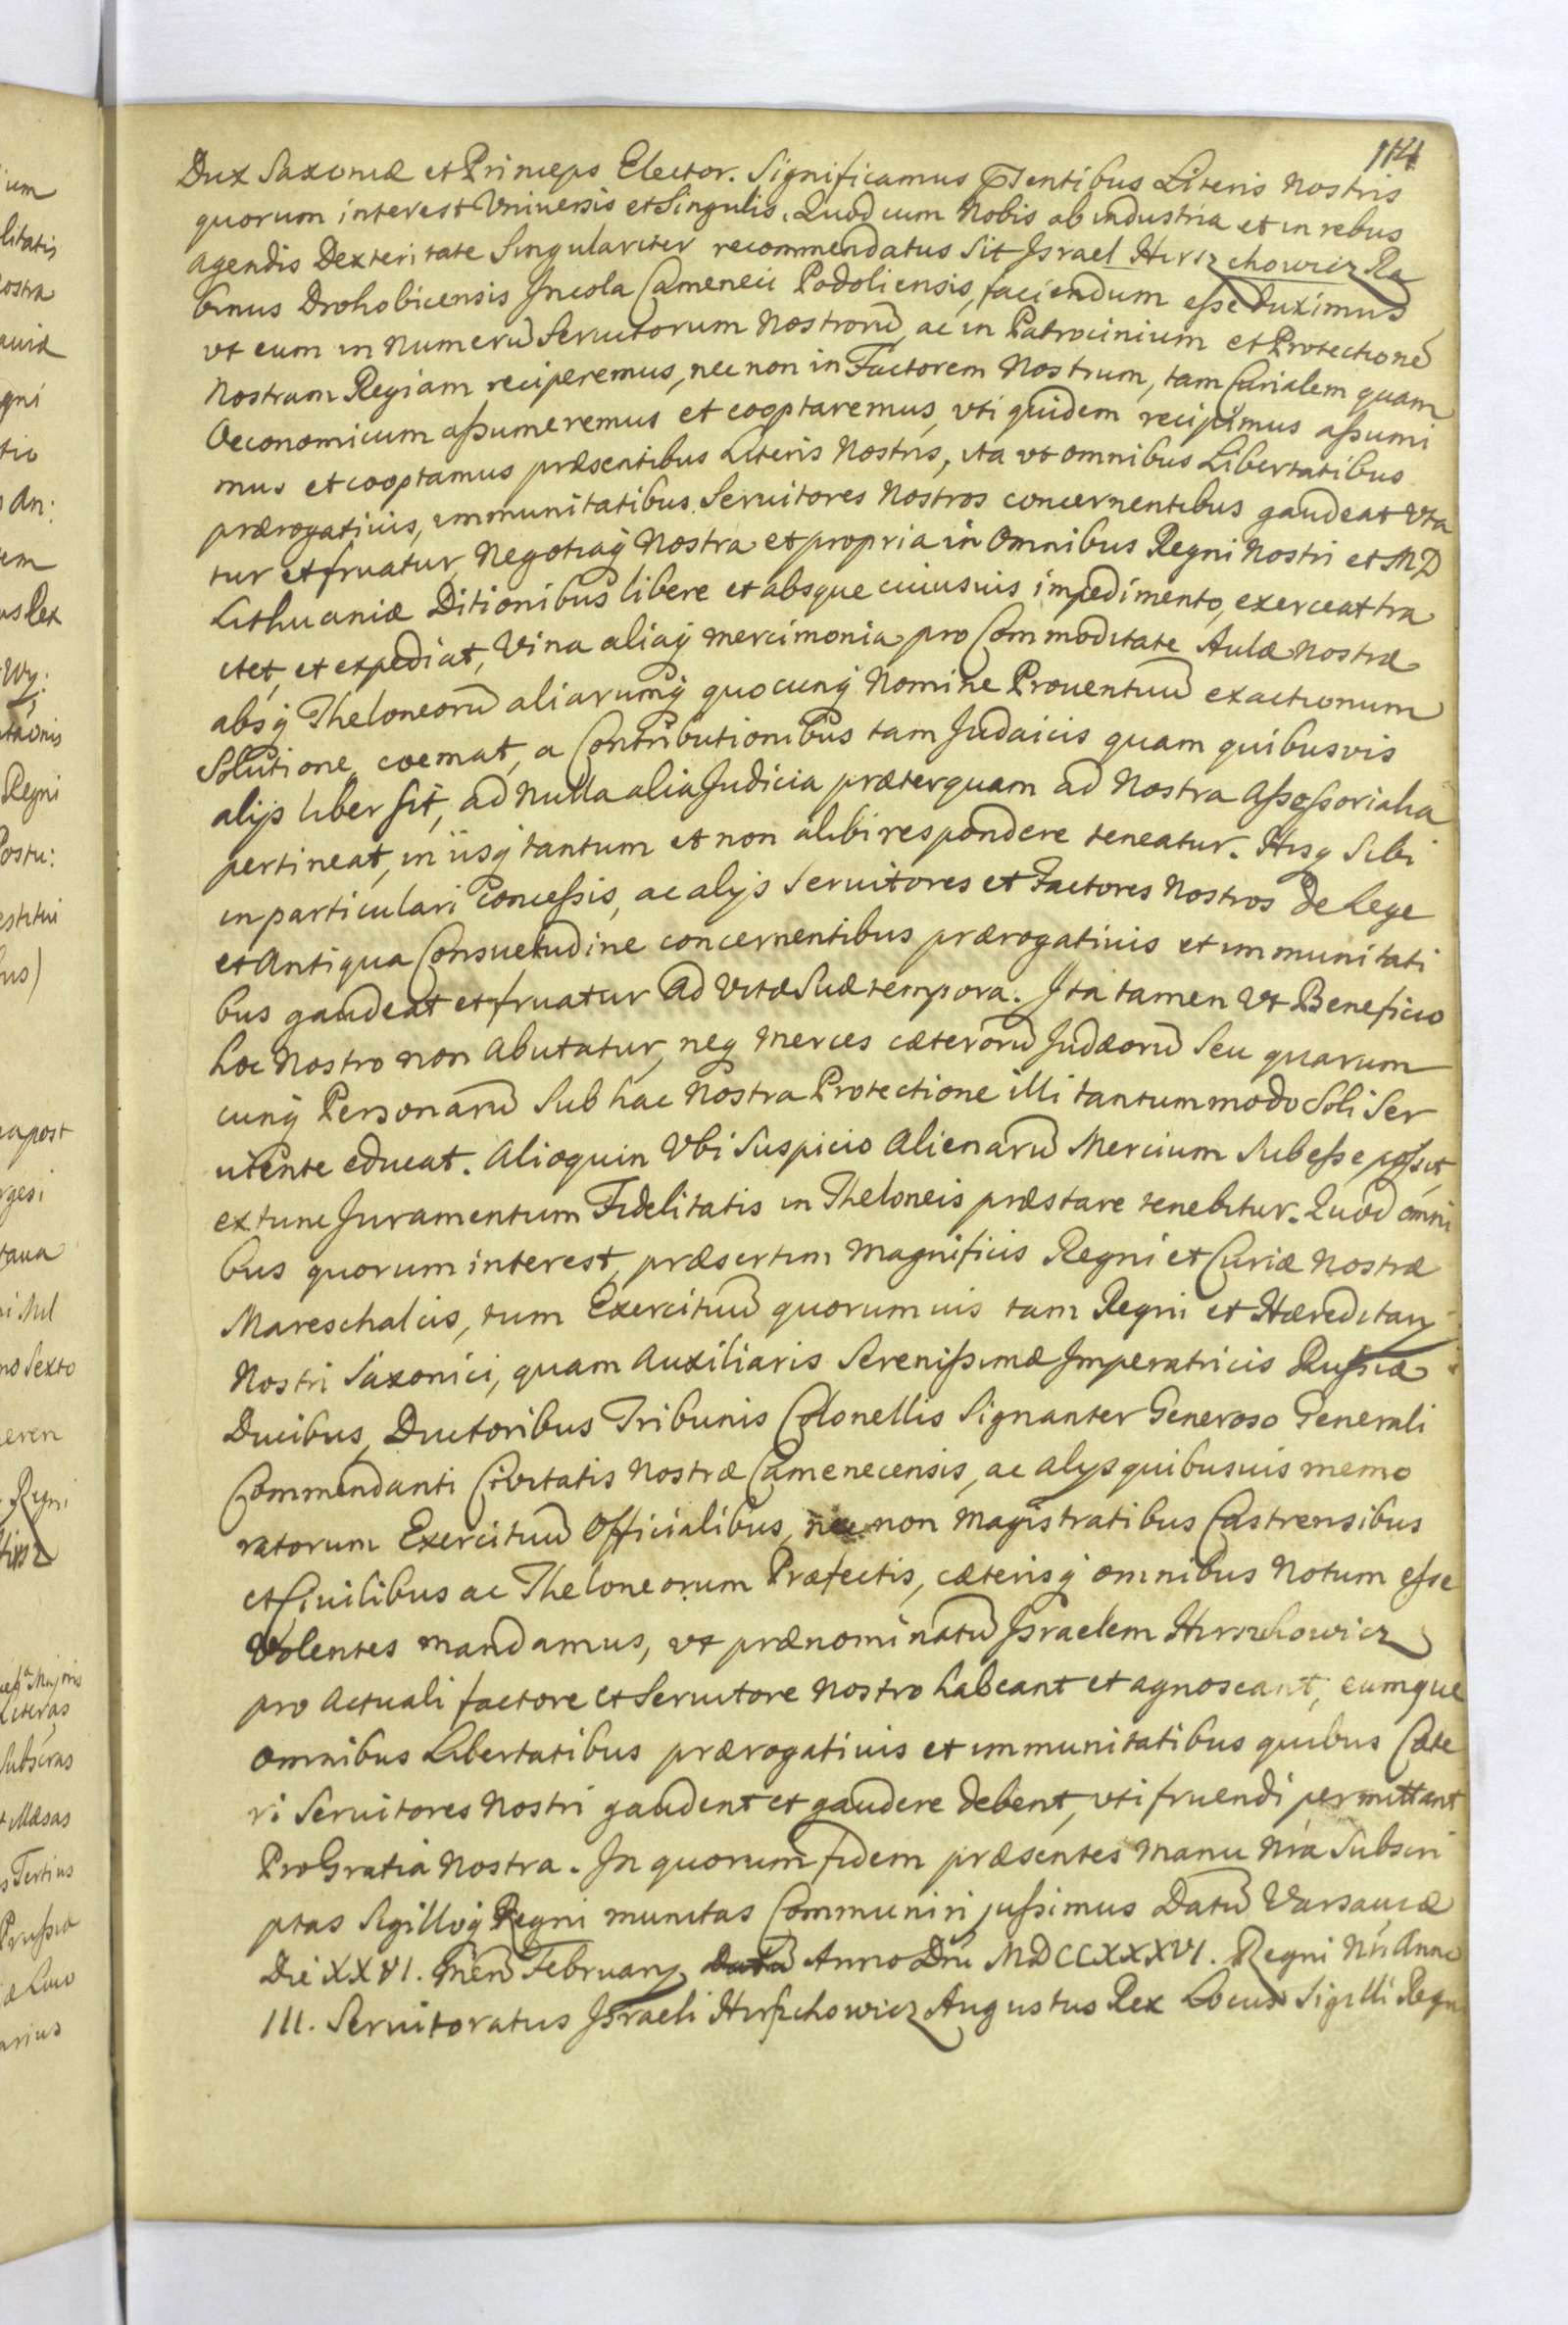 114
Dux Saxoniæ et Princeps Elector. Significamus Pntibus Literis Nostris
quorum interest Vniuersis et Singulis. Quod cum Nobis ab industria et in rebus
agendis Dexteritate Singulariter recommendatus Sit Israel Hirszchowicz Ra
binus Drohobicensis Incola Camenecii Podoliensis, faciendum esse Duximus
vt eum in Numerū Seruitorum Nostrorū, ac in Patrocinium et Protectionē
Nostram Regiam reciperemus, nec non in Factorem Nostrum, tam Curialem quam
Oeconomicum assumeremus et cooptaremus, vti quidem recipimus assumi
mus et cooptamus præsentibus Literis Nostris, ita vt omnibus Libertatibus
prærogatiuis, immunitatibus Seruitores Nostros concernentibus gaudeat Vta
tur et fruatur, Negotiaq Nostra et propria in Omnibus Regni Nostri et M D
Lithuaniæ Ditionibus libere et absque cuiusuis impedimento, exerceat tra
ctet, et expediat, Vina aliaq mercimonia pro Commoditate Aulæ Nostræ
absq Theloneorū aliarumq quocunq Nomine Prouentuū exactionum
Solutione coemat, a Contributionibus tam Judaicis quam quibusvis
alijs liber sit, ad Nulla alia Judicia præterquam ad Nostra Assessorialia
pertineat, in iisq tantum et non alibi respondere teneatur. Hisq Sibi
in particulari Concessis, ac alijs Seruitores et Factores Nostros De Lege
et Antiqua Consuetudine concernentibus prærogatiuis et immunitati
bus gaudeat et fruatur ad Vitæ Suæ tempora. Ita tamen Vt Beneficio
hoc Nostro non Abutatur, neq Merces cæterorū Judæorū Seu quarum
cunq Personarū Sub hac Nostra Protectione illi tantummodo Soli Ser
uiente educat. Alioquin Vbi Suspicio Alienarū Mercium Subesse possit
extunc Juramentum Fidelitatis in Theloneis præstare tenebitur. Quod omni
bus quorum interest, præsertim Magnificis Regni et Curiæ Nostræ
Mareschalcis, tum Exercituū quorumuis tam Regni et Hæreditarij
Nostri Saxonici, quam Auxiliaris Serenissimæ Imperatricis Russiæ
Ducibus, Ductoribus Tribunis Colonellis Signanter Generoso Generali
Commendanti Ciuitatis Nostræ Camenecensis, ac alys quibusuis memo
ratorum Exercituū Officialibus, nec non Magistratibus Castrensibus
et Ciuilibus ac Theloneorum Præfectis, cæterisq omnibus Notum esse
Volentes mandamus, vt prænominatū Israelem Hirszchowicz
pro Actuali factore et Seruitore Nostro habeant et agnoscant, eumque
omnibus Libertatibus prærogatiuis et immunitatibus quibus Cæte
ri Seruitores Nostri gaudent et gaudere debent, vti fruendi permittant
Pro Gratia Nostra. In quorum fidem præsentes Manu Nra Subscri
ptas Sigilloq Regni munitas Communiri jussimus Datū Varsauiæ
Die XXVI. Men Februarij Anno Dni MDCCXXXVI. Regni Nri Anno
III. Seruitoratus Israeli Hirszchowicz Augustus Rex Locus Sigilli Regni